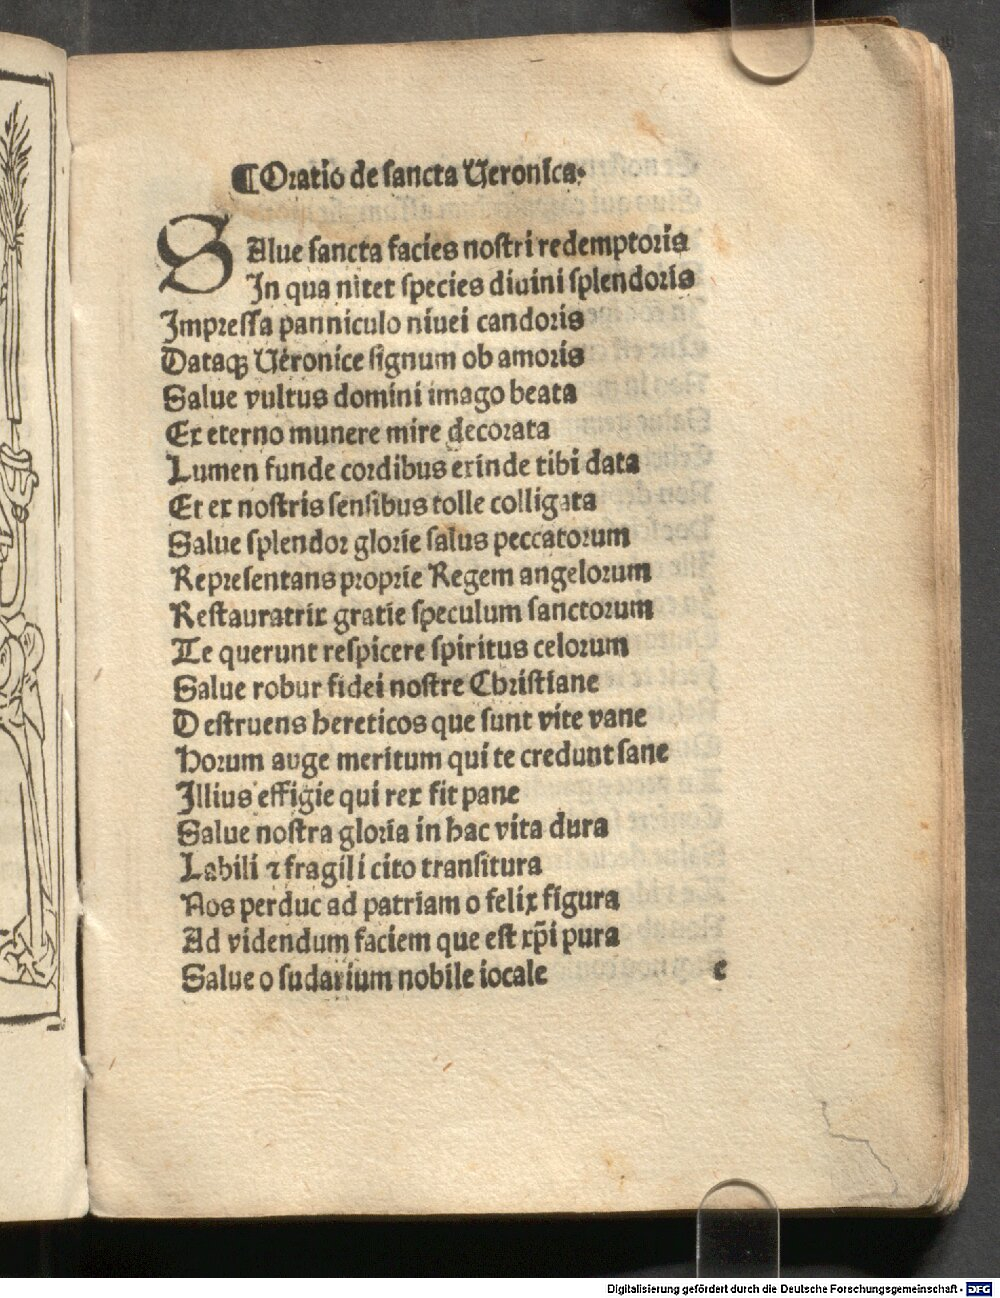 ¶Oratio de sancta Ueronica.
SAlue sancta facies nostri redemptoris
In qua nitet species diuini splendoris
Impressa panniculo niuei candoris
Dataqꝫ Ueronice signum ob amoris
Salue vultus domini imago beata
Ex eterno munere mire decorata
Lumen funde cordibus exinde tibi data
Et ex nostris sensibus tolle colligata
Salue splendor glorie salus peccatorum
Representans proprie Regem angelorum
Restauratrix gratie speculum sanctorum
Te querunt respicere spiritus celorum
Salue robur fidei nostre Christiane
Destruens hereticos que sunt vite vane
Horum auge meritum qui te credunt sane
Illius effigie qui rex fit pane
Salue nostra gloria in hac vita dura
Labili ⁊ fragili cito transitura
Nos perduc ad patriam o felix figura
Ad videndum faciem que est xp̄i pura
Salue o sudarium nobile iocale
e
Digitalisierung gefördert durch die Deutsche Forschungsgemeinschaft - DFG